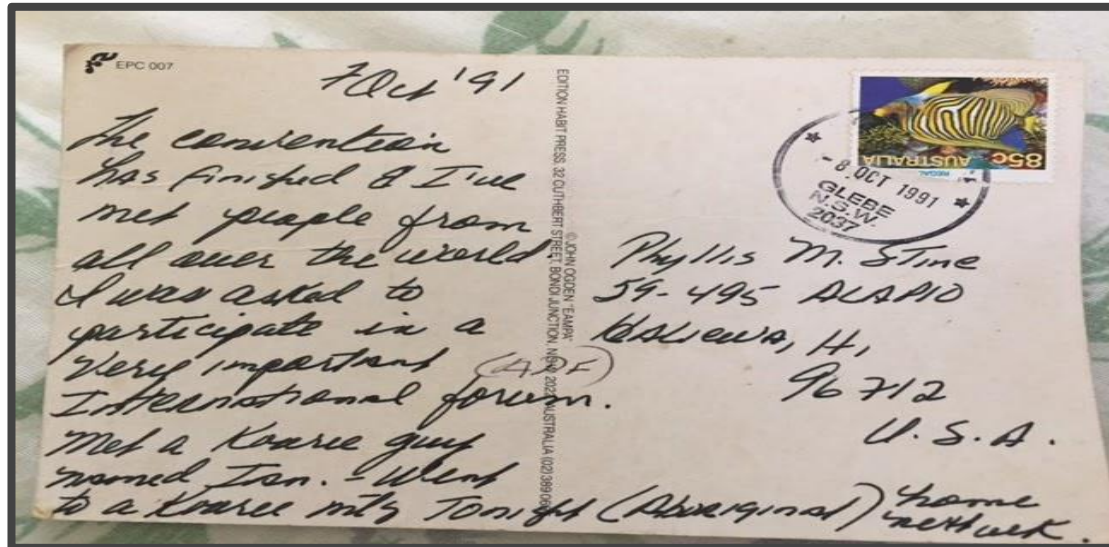 EPC 007
7 Oct '91
The convention
has finished & I've
met people from
all over the world.
I was asked to
participate in a
very important
International forum.
Met a Koorie guy
named Ian. - Went
to a Koorie mtg Tonight (Aboriginal) home
next week.
EDITION HABIT PRESS. 32 CUTHBERT STREET, BONDI JUNCTION. N.S.W. 2022 AUSTRALIA (02)
© JOHN OGDEN "EAMPA"
85c
AUSTRALIA
REGAL
-8. OCT 1991
GLEBE
N.S.W.
2037
Phyllis M. Stine
59-495 ALAPIO
HALIEWA, HI
96712
U.S.A.